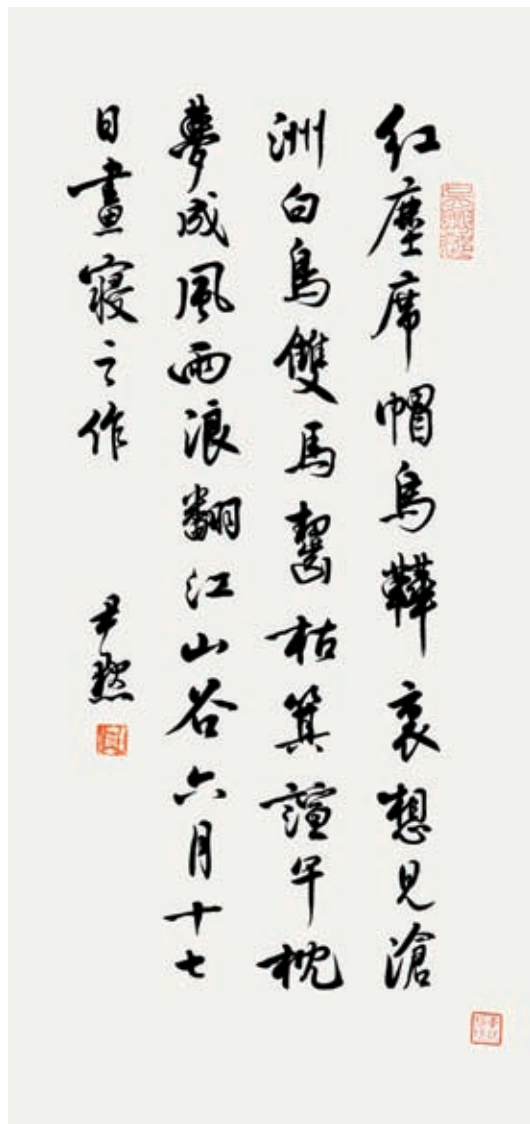 紅塵席帽烏鞾裏想見滄
洲白鳥雙馬齧枯箕諠午枕
夢成風雨浪翻江山谷六月十七
日晝寢之作
尹默